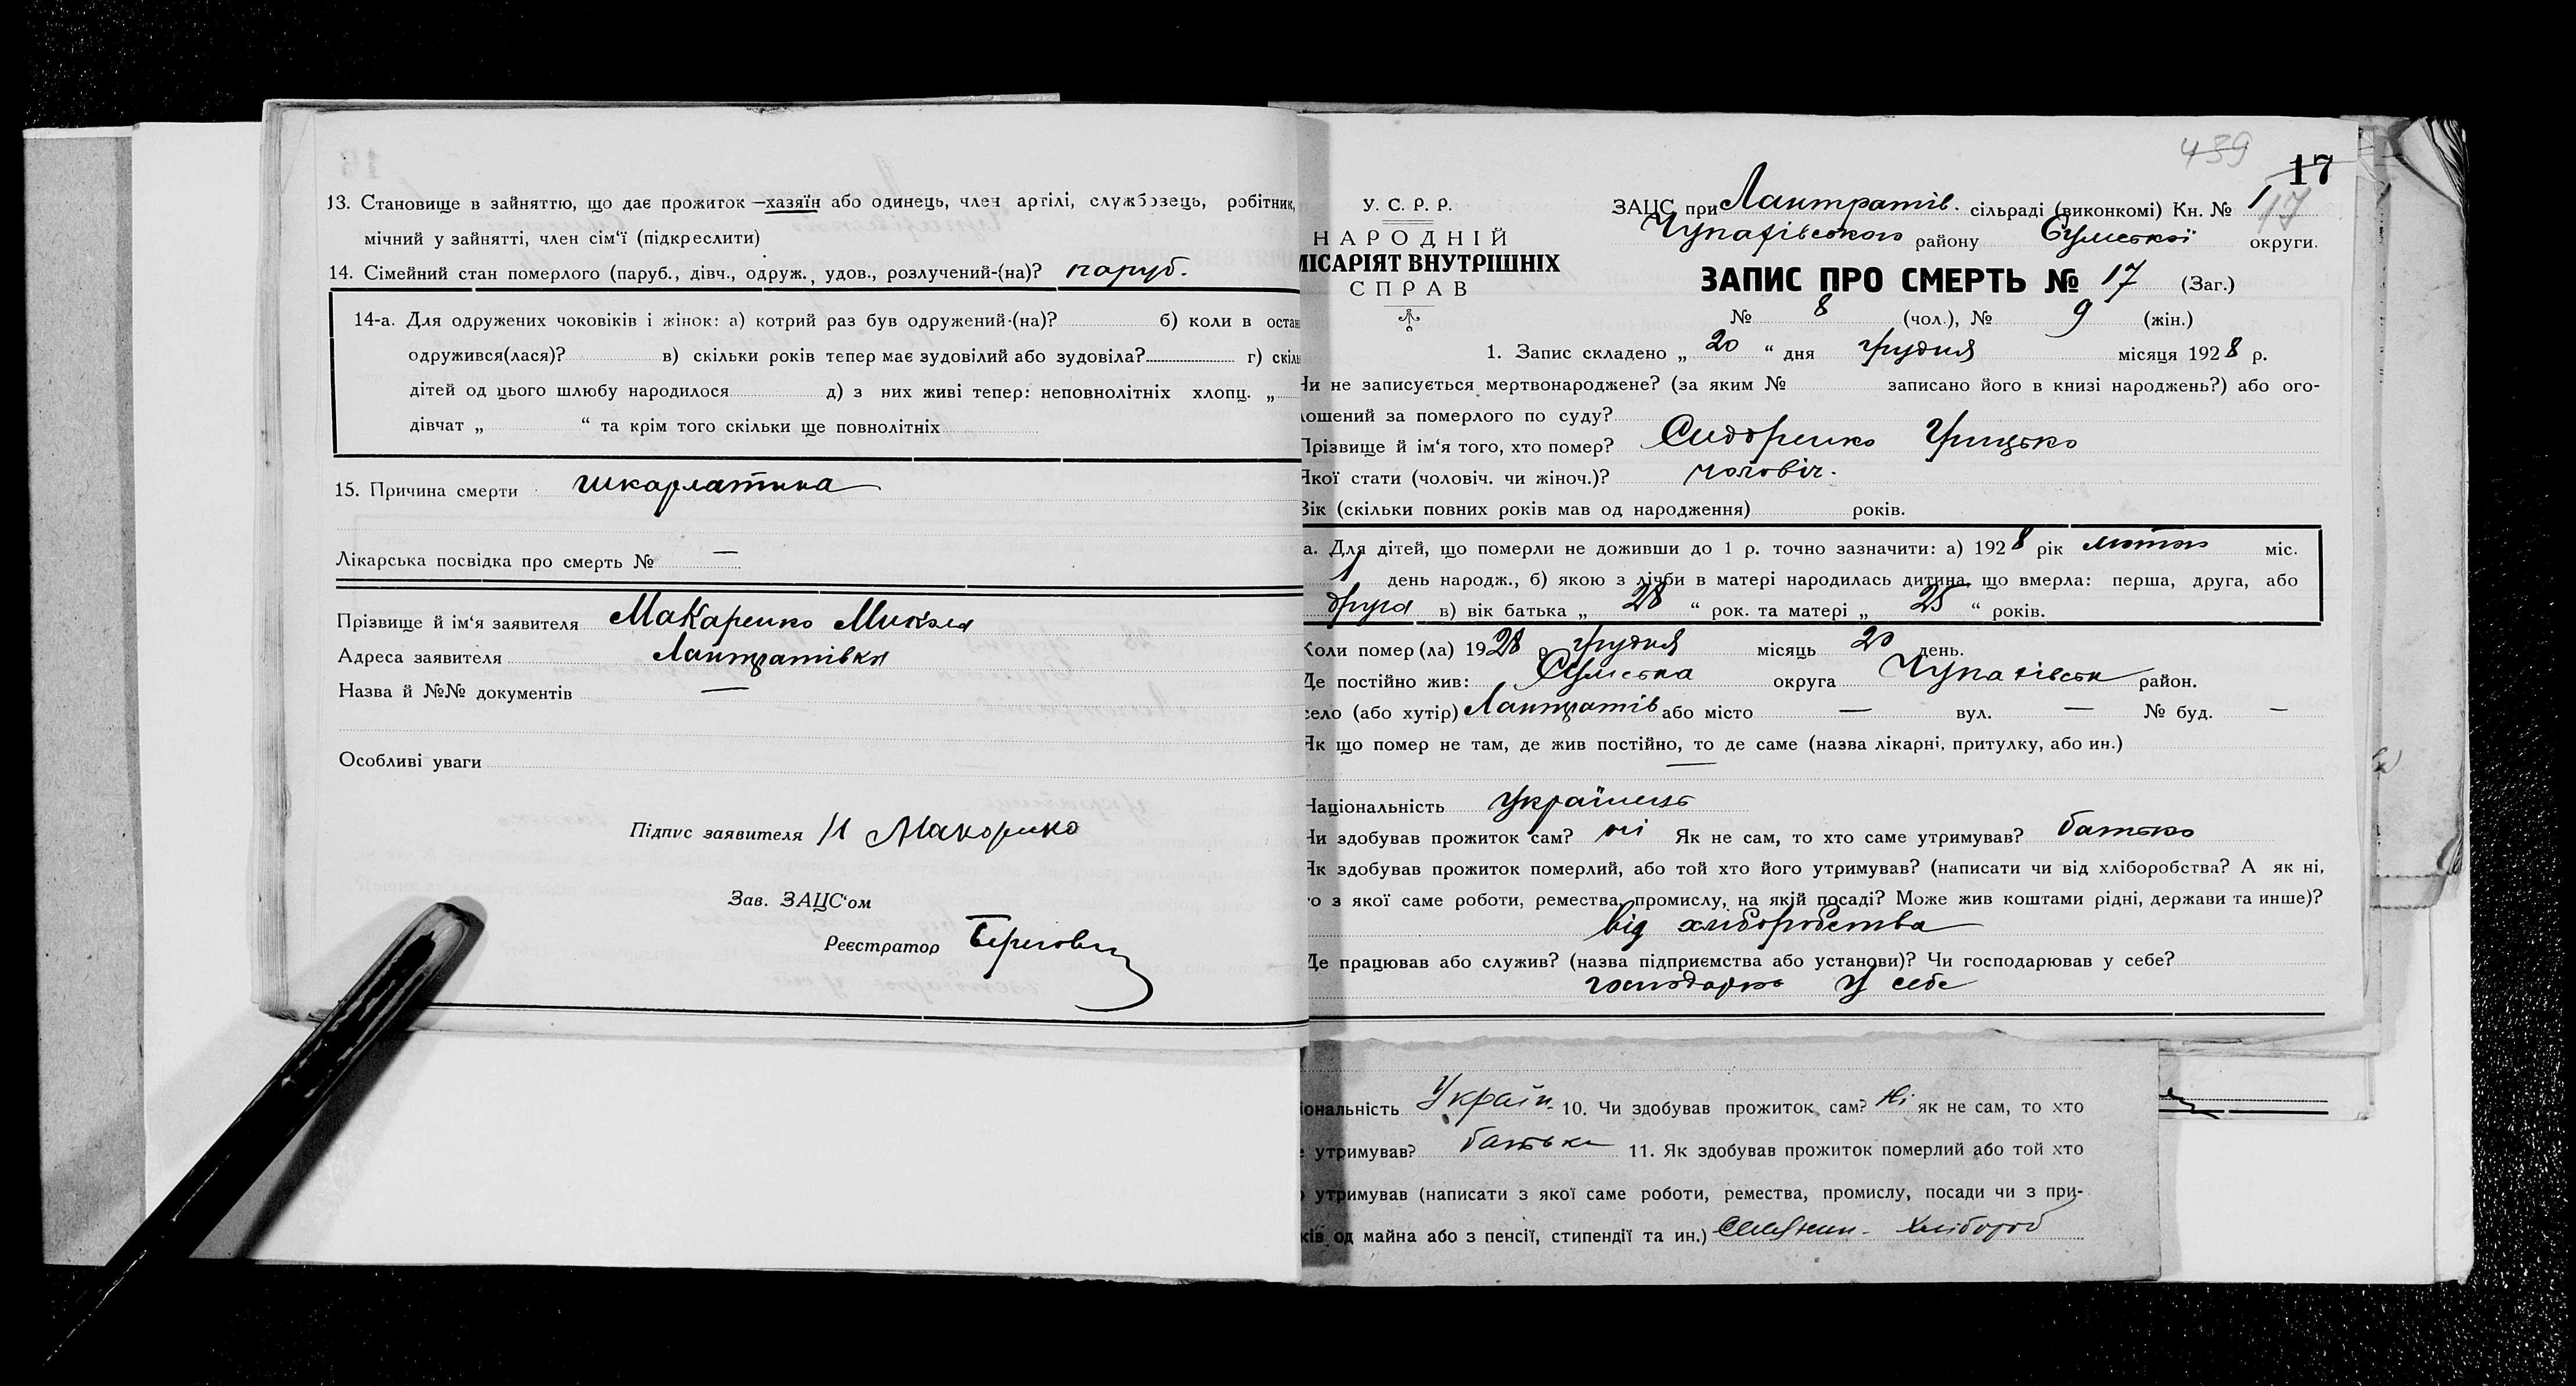 13. Становище в зайняттю, що дає прожиток —хазяїн або одинець, член артілі, службовець, робітник,
мічний у зайнятті, член сім'ї (підкреслити)
14. Сімейний стан померлого (паруб., дівч., одруж., удов., розлучений-(на)? паруб.
14-а. Для одружених чоковіків і жінок: а) котрий раз був одружений-(на)? б) коли в остан
одружився(лася)? в) скільки років тепер має зудовілий або зудовіла? г) скіль
дітей од цього шлюбу народилося д) з них живі тепер: неповнолітніх хлопц. „
дівчат „ “ та крім того скільки ще повнолітніх
15. Причина смерти шкарлатина
Лікарська посвідка про смерть № —
Прізвище й ім'я заявителя Макаренко Микола
Адреса заявителя Лантратівка
Назва й №№ документів —
Особливі уваги
Підпис заявителя М Макаренко
Зав. ЗАЦС'ом
Реєстратор
439
17
У. С. Р. Р.
НАРОДНІЙ
МІСАРІЯТ ВНУТРІШНІХ
СПРАВ
ЗАЦС при Лантратів. сільраді (виконкомі) Кн. № 1
17
Чупахівського району Сумської округи.
ЗАПИС ПРО СМЕРТЬ № 17 (Заг.)
№ 8 (чол.), № 9 (жін.)
1. Запис складено „ 20 “ дня грудня місяця 1928 р.
Чи не записується мертвонароджене? (за яким № записано його в книзі народжень?) або ого-
лошений за померлого по суду?
Прізвище й ім'я того, хто помер? Сидоренко Грицько
Якої стати (чоловіч. чи жіноч.)? чоловіч.
Вік (скільки повних років мав од народження) років.
а. Для дітей, що померли не доживши до 1 р. точно зазначити: а) 1928 рік лютого міс.
1 день народж., б) якою з лічби в матері народилась дитина, що вмерла: перша, друга, або
друга в) вік батька „ 28 “ рок. та матері „ 25 “ років.
Коли помер(ла) 1928 р грудня місяць 20 день.
Де постійно жив: Сумська округа Чупахівськ район.
село (або хутір) Лантратів або місто — вул. — № буд. —
Як що помер не там, де жив постійно, то де саме (назва лікарні, притулку, або ин.)
—
Національність Українець
Чи здобував прожиток сам? ні Як не сам, то хто саме утримував? батько
Як здобував прожиток померлий, або той хто його утримував? (написати чи від хліборобства? А як ні,
то з якої саме роботи, ремества, промислу, на якій посаді? Може жив коштами рідні, держави та инше)?
від хліборобства
Де працював або служив? (назва підприємства або установи)? Чи господарював у себе?
господарює у себе
іональність Україн. 10. Чи здобував прожиток сам? Ні як не сам, то хто
е утримував? батьки 11. Як здобував прожиток померлий або той хто
о утримував (написати з якої саме роботи, ремества, промислу, посади чи з при-
ків од майна або з пенсії, стипендії та ин.) Селянин - хлібороб